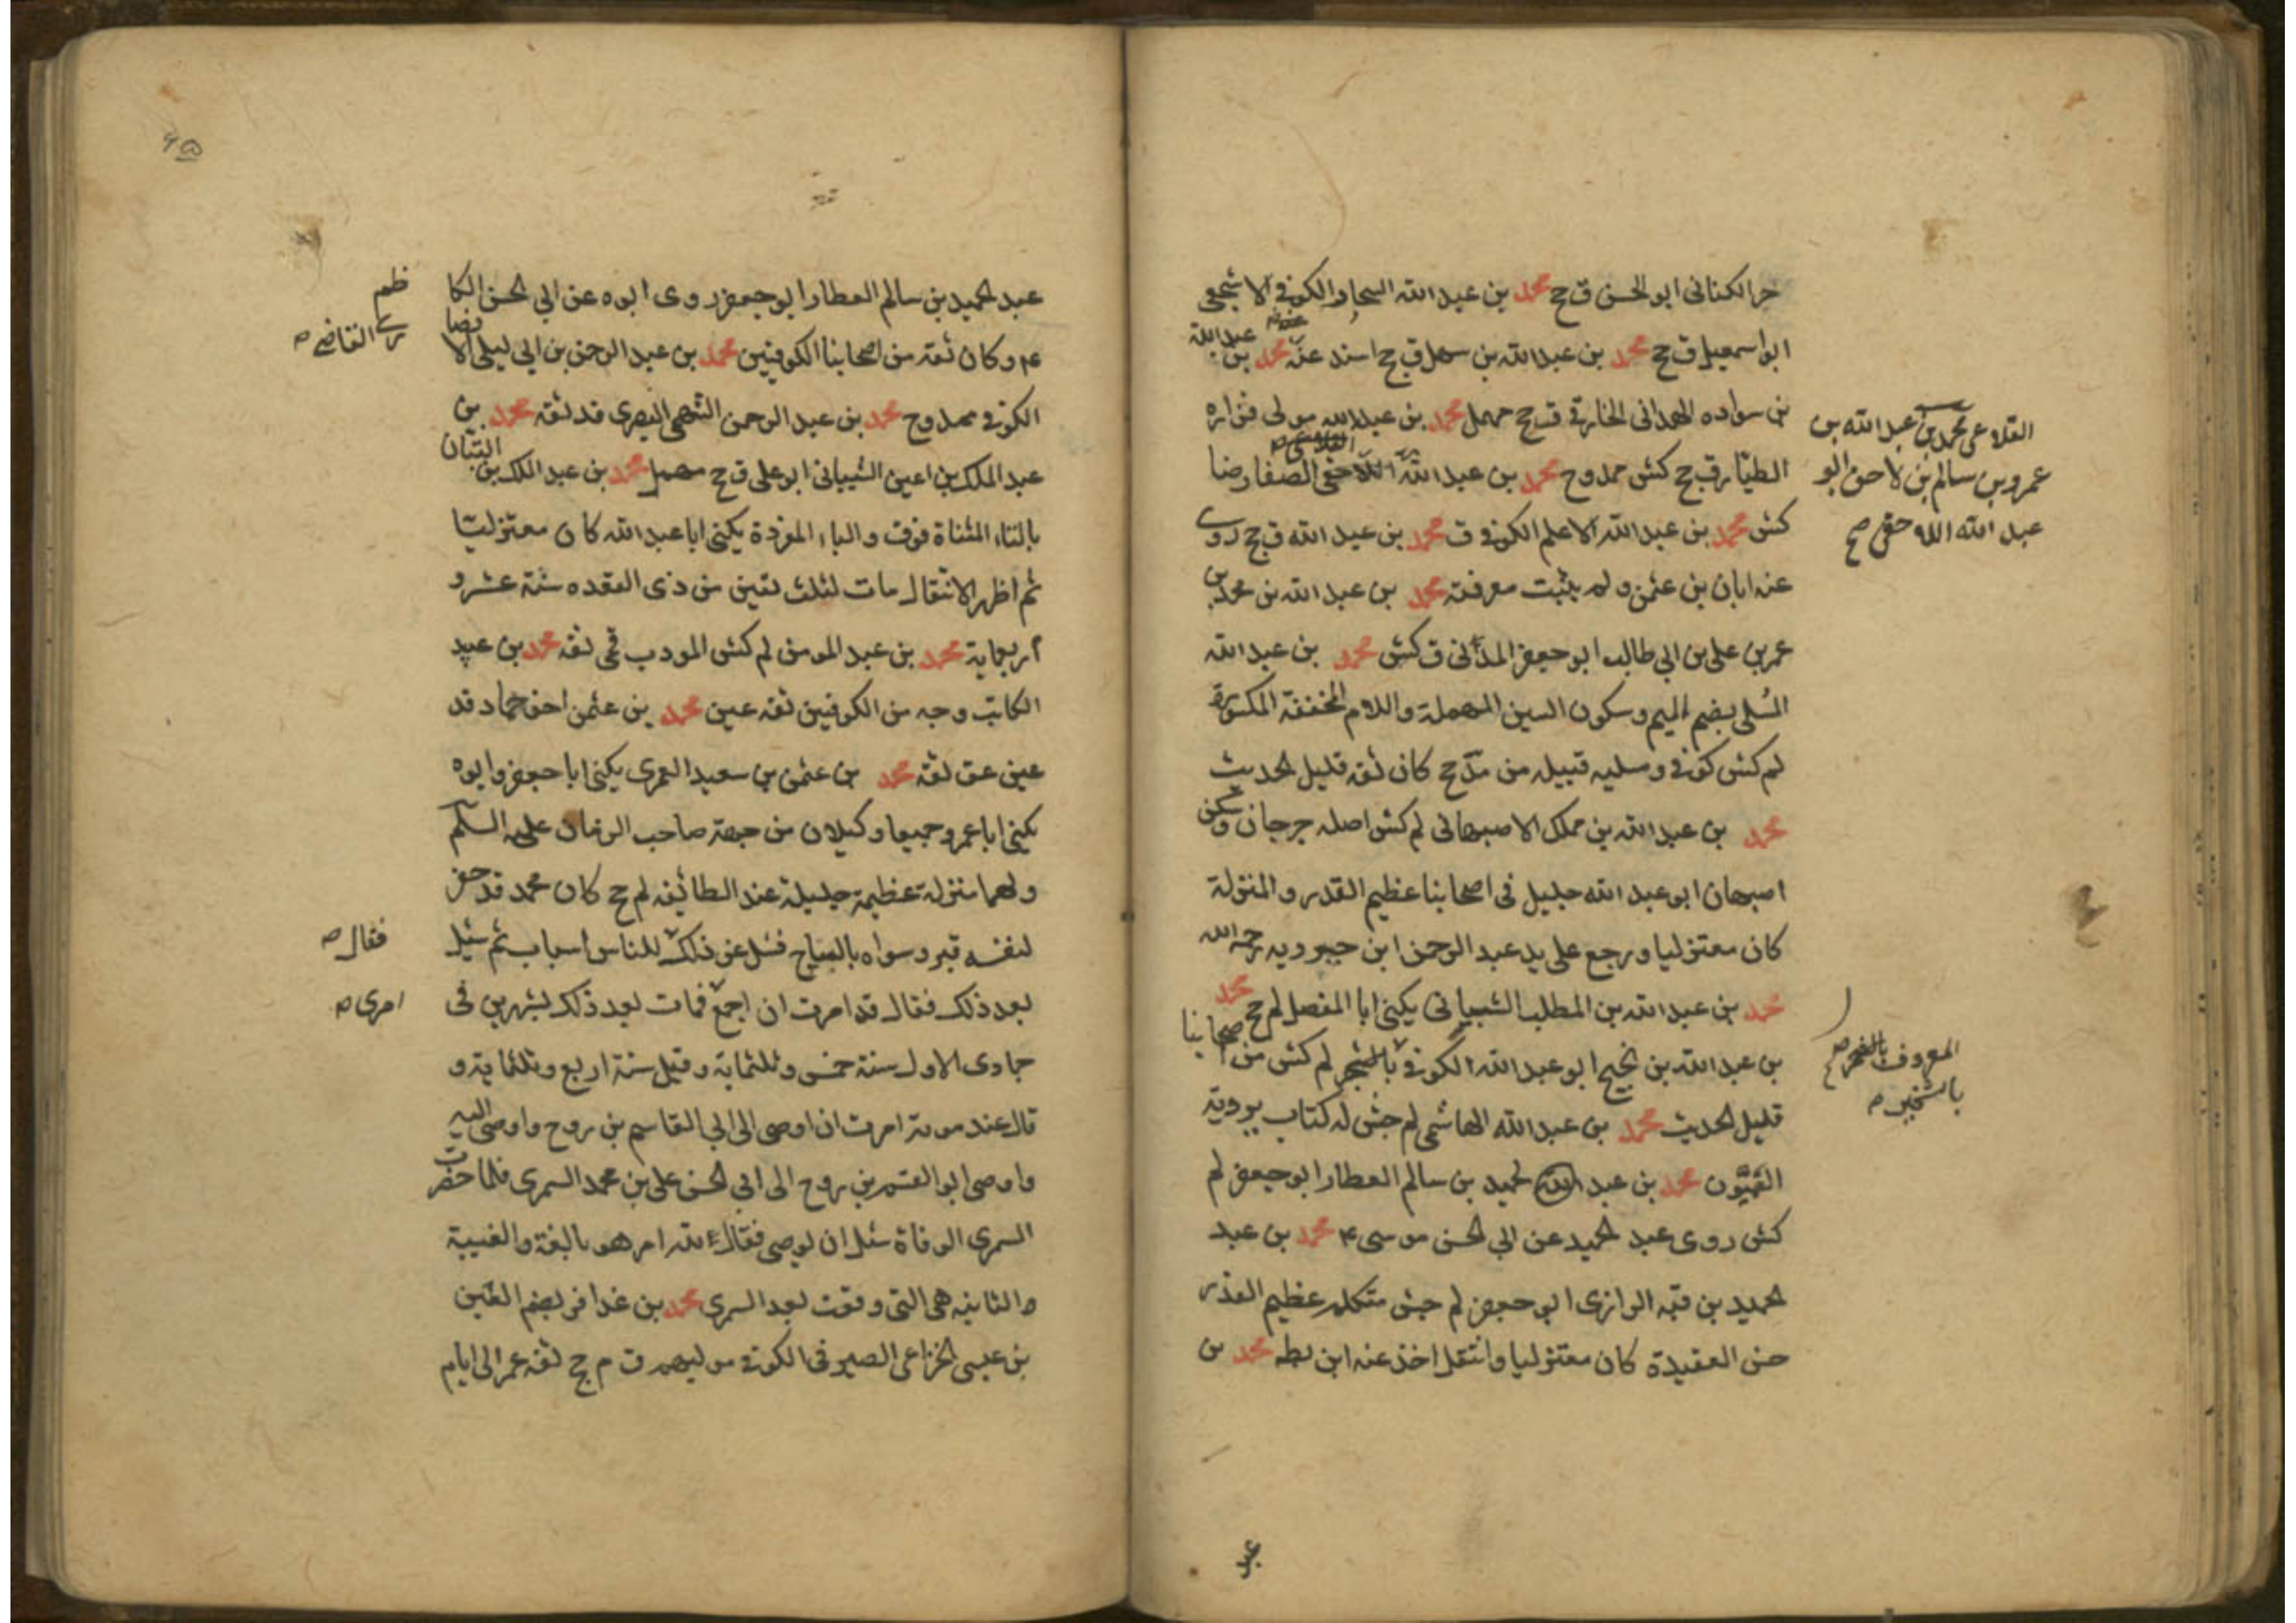 حر الكنانى ابو الحسن ق ج محمد بن عبد الله الكوفى الاشجعى
ابو اسمعيل ق ج محمد بن عبد الله بن سهل ق ج اسند عنه محمد بن عبد الله
بن سواده الهمدانى الخارقى ق ج مهمل محمد بن عبد الله مولى فزاره
الطيار ق ج كش ممدوح محمد بن عبد الله اللاحقى الصفار ضا
القلاعى محمد بن عبد الله بن
عمرو بن سالم بن لاحق ابو
عبد الله اللاحقى صح
كش محمد بن عبد الله الاعلم الكوفى ق محمد بن عبد الله ق ج روى
عنه ابان بن عثمن ولم يثبت معرفته محمد بن عبد الله بن محمد بن
عمر بن على بن ابى طالب ابو جعفر المدنى ق كش محمد بن عبد الله
المسلى بضم الميم وسكون السين المهملة واللام المخففة المكسورة
لم كش كوفى ومسليه قبيله من مذحج كان ثقه قليل الحديث
محمد بن عبد الله بن مملك الاصبهانى لم كش اصله جرجان وسكن
اصبهان ابو عبد الله جليل فى اصحابنا عظيم القدر والمنزلة
كان معتزليا ورجع على يد عبد الرحمن ابن جبرويه رحمه الله
محمد بن عبد الله بن المطلب الشيبانى يكنى ابا المفضل لم ج محمد
بن عبد الله بن نجيح ابو عبد الله الكوفى لم كش من اصحابنا
المعروف
قليل الحديث محمد بن عبد الله الهاشمى لم جش له كتاب يرويه
القميون محمد بن عبد الحميد بن سالم العطار ابو جعفر لم
كش روى عبد الحميد عن ابى الحسن موسى ع محمد بن عبد
لحميد بن قبه الرازى ابو جعفر لم جش متكلم عظيم القدر
حسن العقيدة كان معتزليا وانتقل اخذ عنه ابن بطه محمد بن
عبد
٩٥
عبد الحميد بن سالم العطار ابو جعفر روى ابوه عن ابى الحسن الكا
ظم
ع وكان ثقه من اصحابنا الكوفيين محمد بن عبد الرحمن بن ابى ليلى الانصا
رى القاضى ص
الكوفى ممدوح محمد بن عبد الرحمن السهمى البصرى قد ثقه محمد بن
عبد الملك بن اعين الشيبانى ابو على ق ج مهمل محمد بن عبد الملك بن التبان
بالتاء المثناة فوق والباء المفردة يكنى ابا عبد الله كان معتزليا
ثم اظهر الانتقال مات لثلث بقين من ذى القعده سنة عشر و
اربعماية محمد بن عبد المومن لم كش المودب قمى ثقه محمد بن عبيد
الكاتب وجه من الكوفيين ثقه عين محمد بن عثمن اخو حماد قد
عين عق ثقه محمد بن عثمن بن سعيد العمرى يكنى ابا جعفر وابوه
يكنى ابا عمرو جميعا وكيلان من جهة صاحب الزمان عليه السلام
ولهما منزلة عظيمة جليلة عند الطائفه لم ج كان محمد قد حفر
لنفسه قبر وسواه بالساج فسئل عن ذلك للناس اسباب ثم سئل
فقال ص
بعد ذلك فقال قد امرت ان اجمع فمات بعد ذلك بشهرين فى
امرى ص
جمادى الاول سنة خمس وثلثماية وقيل سنة اربع وثلثماية و
قال عند موته امرت ان اوصى الى ابى القاسم بن روح واوصى اليه
واوصى ابو القسم بن روح الى ابى الحسن على بن محمد السمرى فلما حضرت
السمرى الوفاة سئل ان يوصى فقال لله امر هو بالغه والغيبة
والثانيه هى التى وقعت بعد السمرى محمد بن عذافر بضم العين
بن عيسى الخزاعى الصيرفى الكوفى موليهم ق م ج ثقه عمر الى ايام